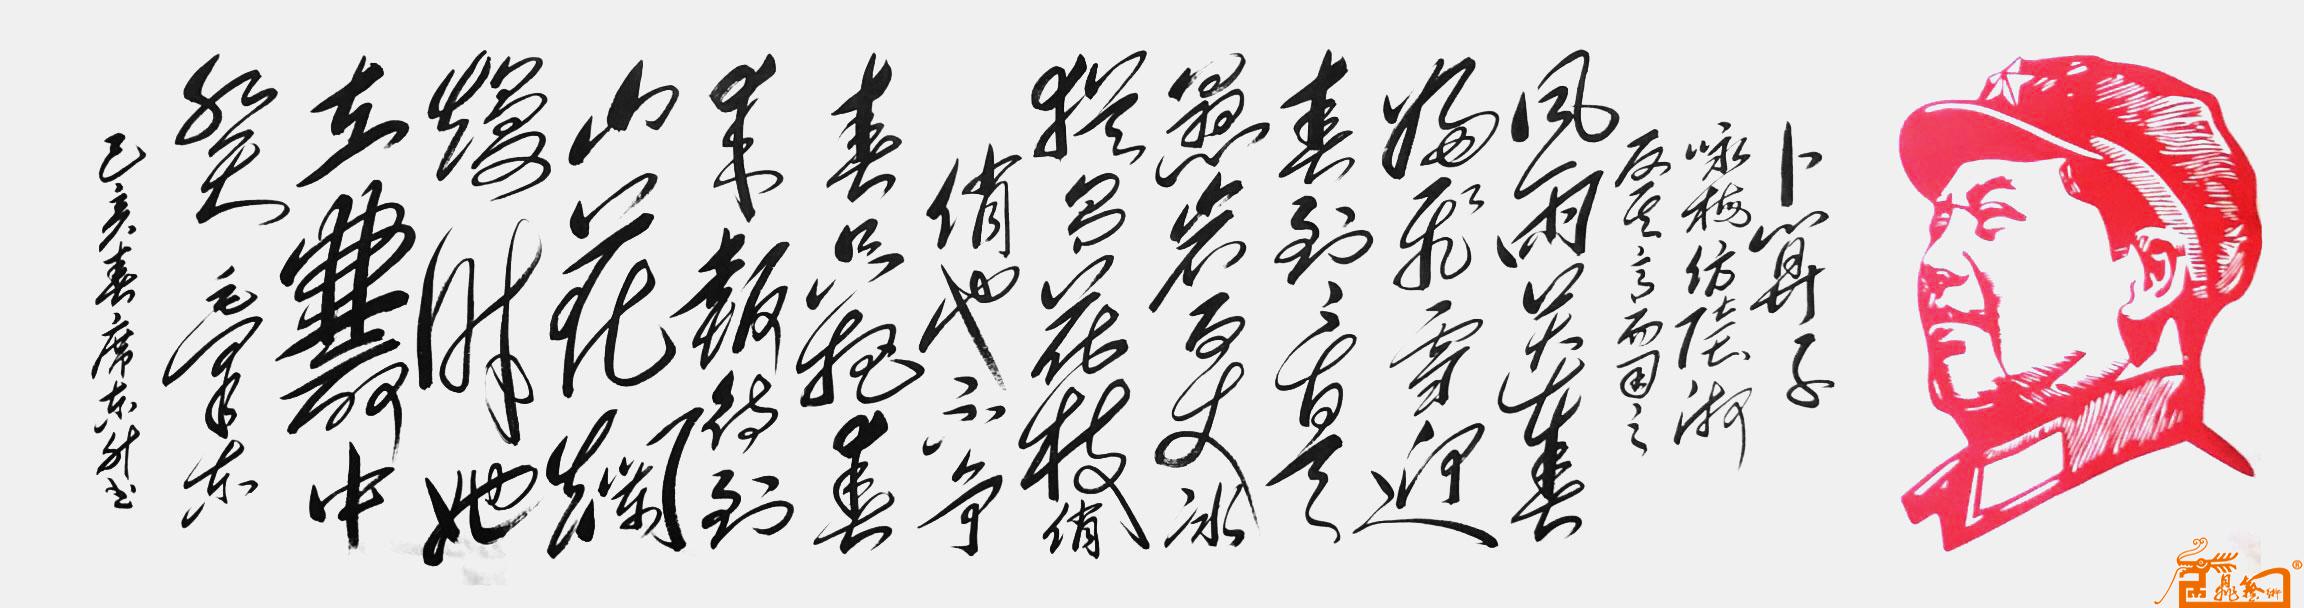 卜算子
咏梅仿陸游
反其意而用之
风雨送春
歸飛雪迎
春到已是
懸崖百丈冰
猶有花枝俏
俏也不争
春只把春
来報待到
山花爛
漫时她
在叢中
笑 毛泽东
己亥春席东升书